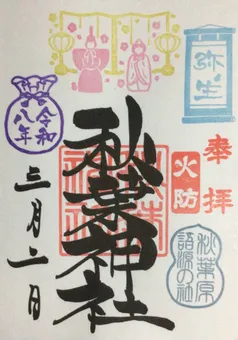 弥生
奉拝
火防
秋葉神社
秋葉原
語源の社
令和
八年
三月二日